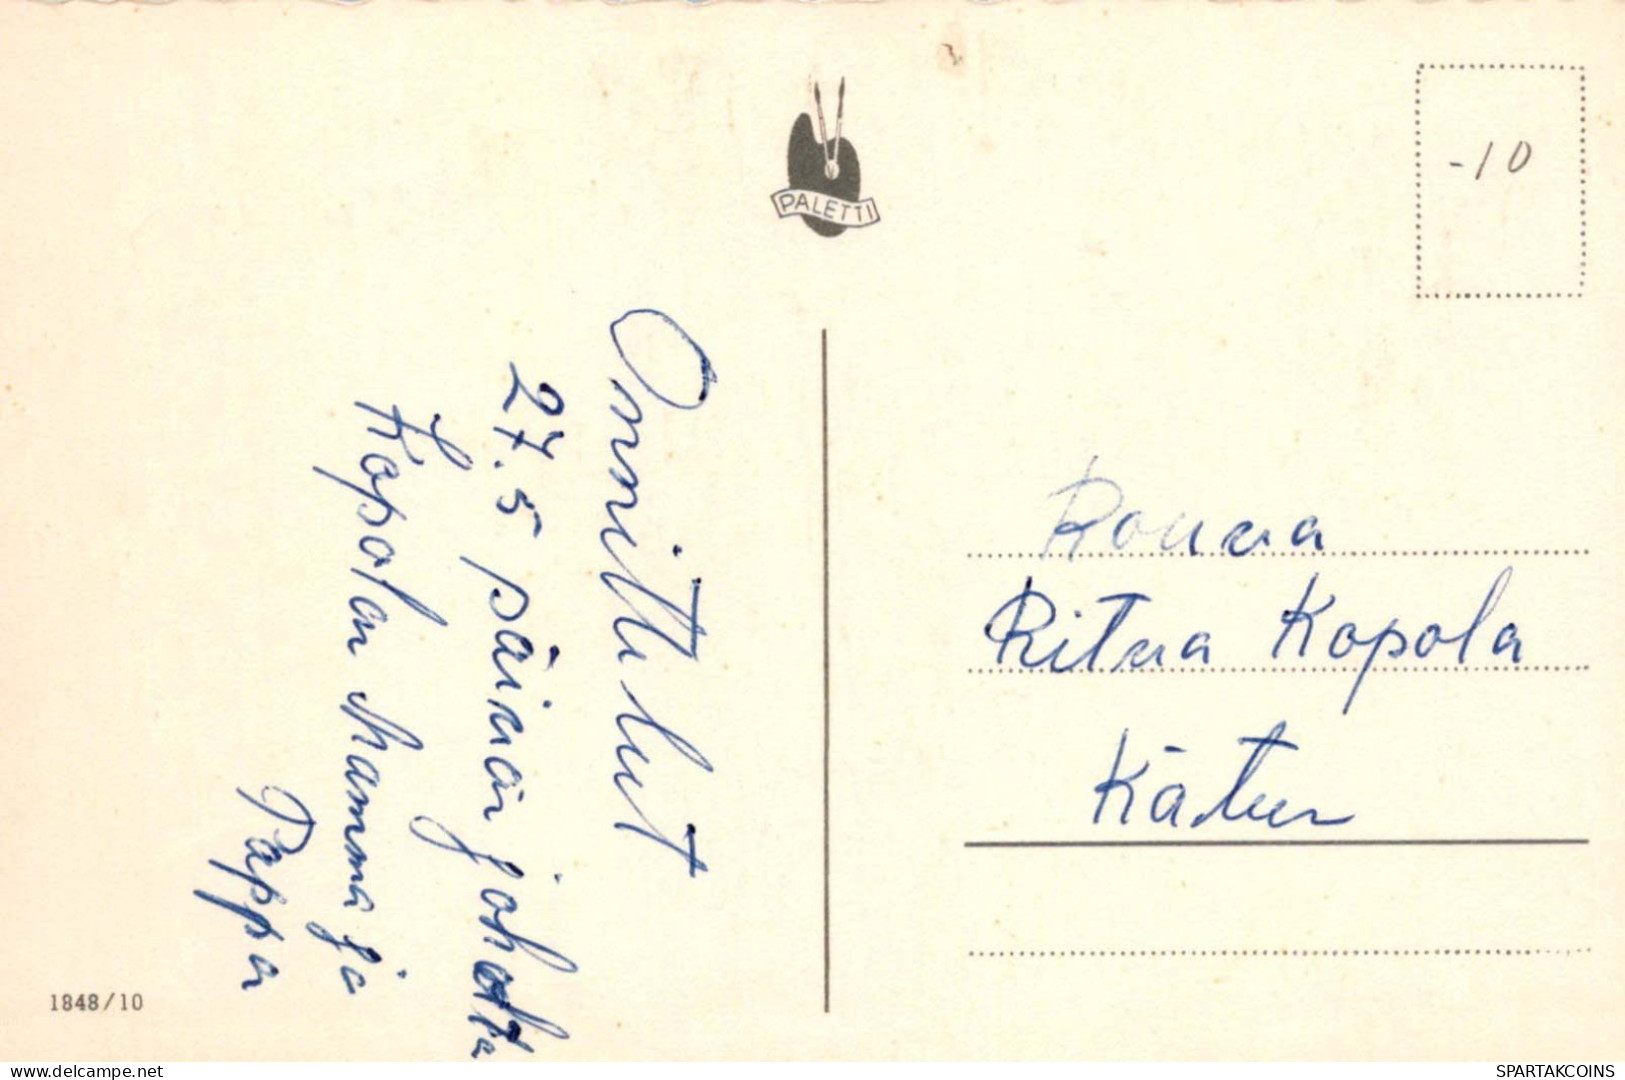 Onnittelut
27.5 päivän johdosta
Kopolan Mamma ja
Pappa
PALETTI
-10
Rouva
Ritva Kopola
Käteen
1848/10
delcampe.net
SPARTAKCOINS